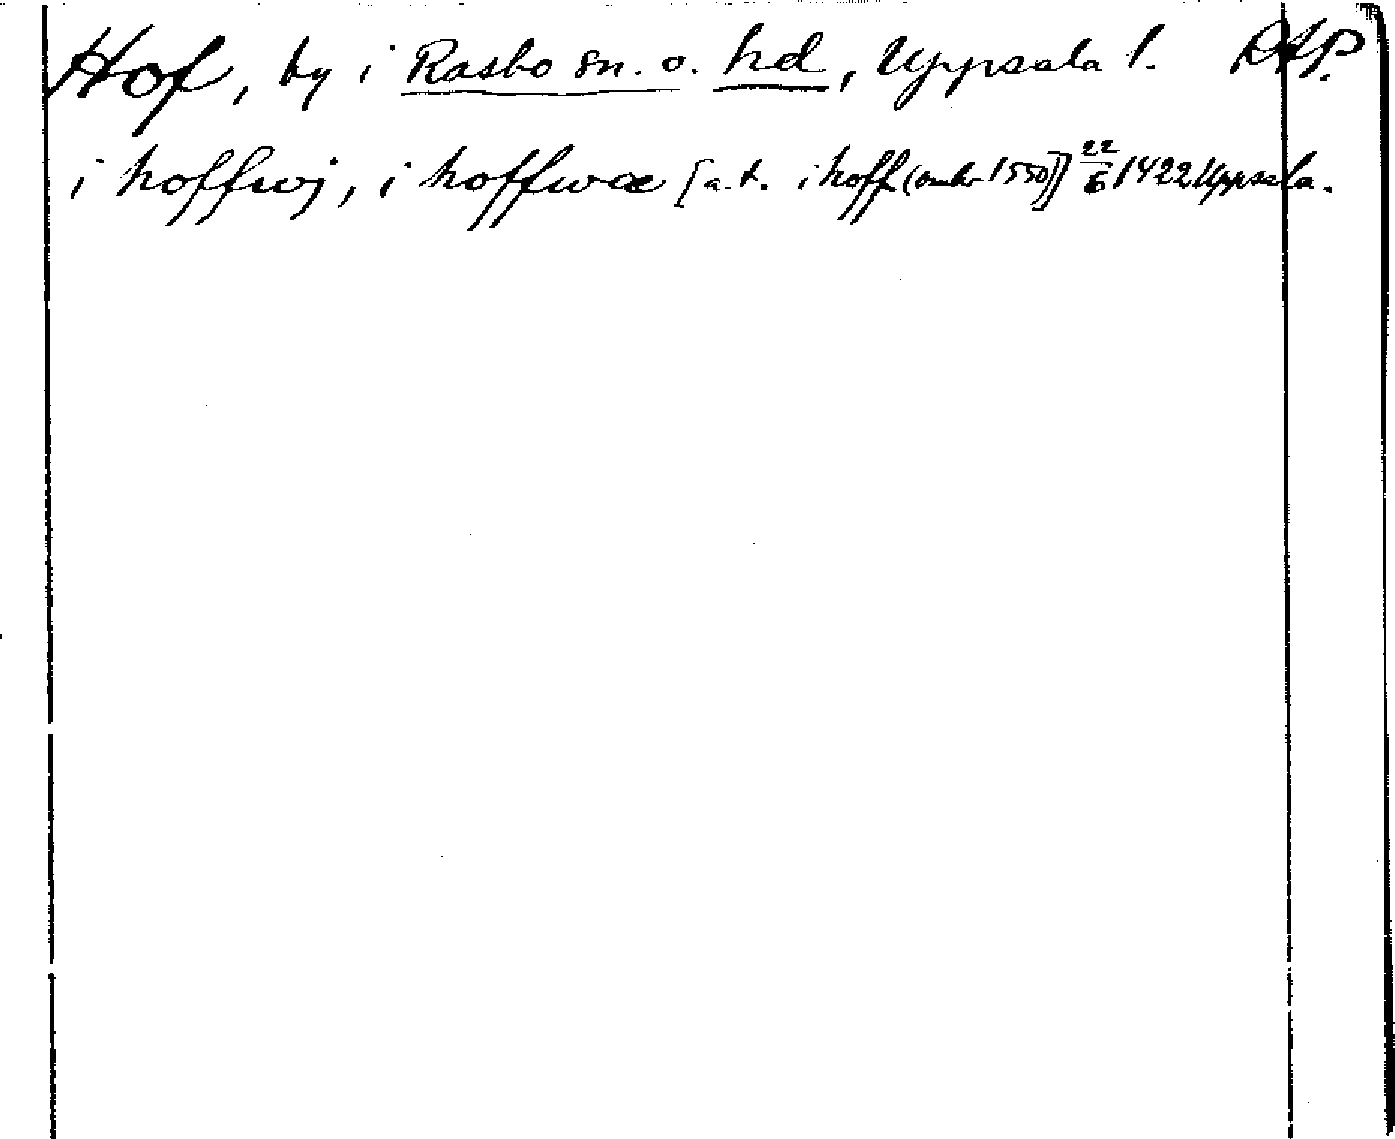 Hof, by i Rasbo sn. o. hd, Uppsala l. RAP.
i hoffwj, i hoffwæ [a.t. i hoff (omkr 1550)] 22/6 1422 Uppsala.